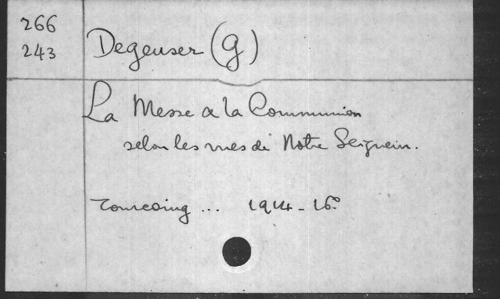 266
243
Degeuser (G)
La Messe a la Communion
selon les vues de Notre Seigneur.
Tourcoing ... 1914 - 16°